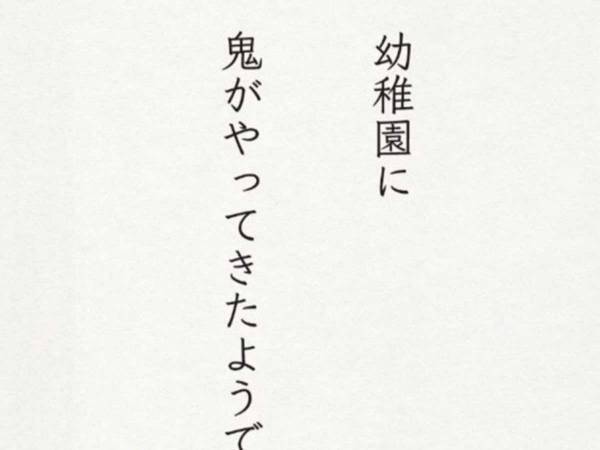 幼稚園に
鬼がやってきたようで